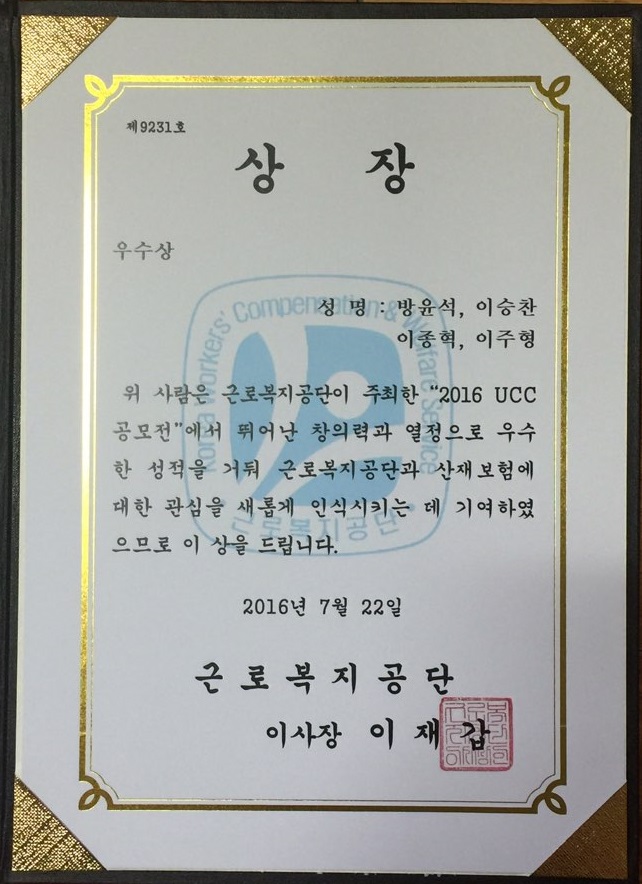 제9231호
상 장
우수상
성 명 : 방윤석, 이승찬
이종혁, 이주형
Korea Workers' Compensation & Welfare Service
위 사람은 근로복지공단이 주최한 “2016 UCC
공모전”에서 뛰어난 창의력과 열정으로 우수
한 성적을 거둬 근로복지공단과 산재보험에
대한 관심을 새롭게 인식시키는 데 기여하였
으므로 이 상을 드립니다.
근로복지공단
2016년 7월 22일
근로복지공단
이사장 이재갑